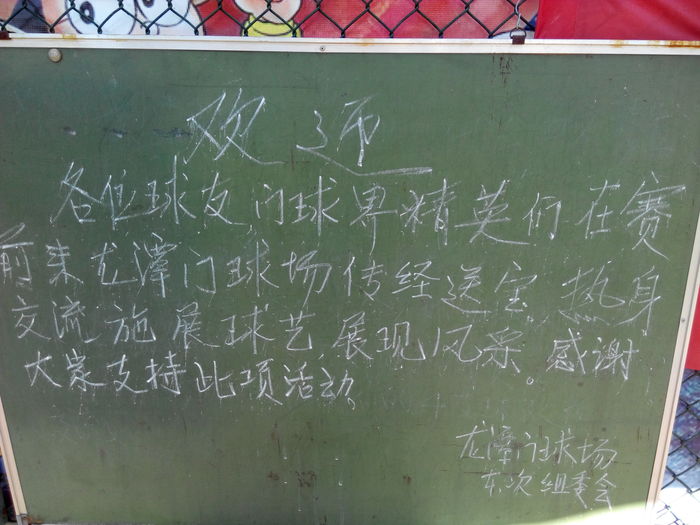 欢迎
各位球友门球界精英们在赛
前来龙潭门球场传经送宝热身
交流施展球艺展现风采。感谢
大家支持此项活动
龙潭门球场
本次组委会